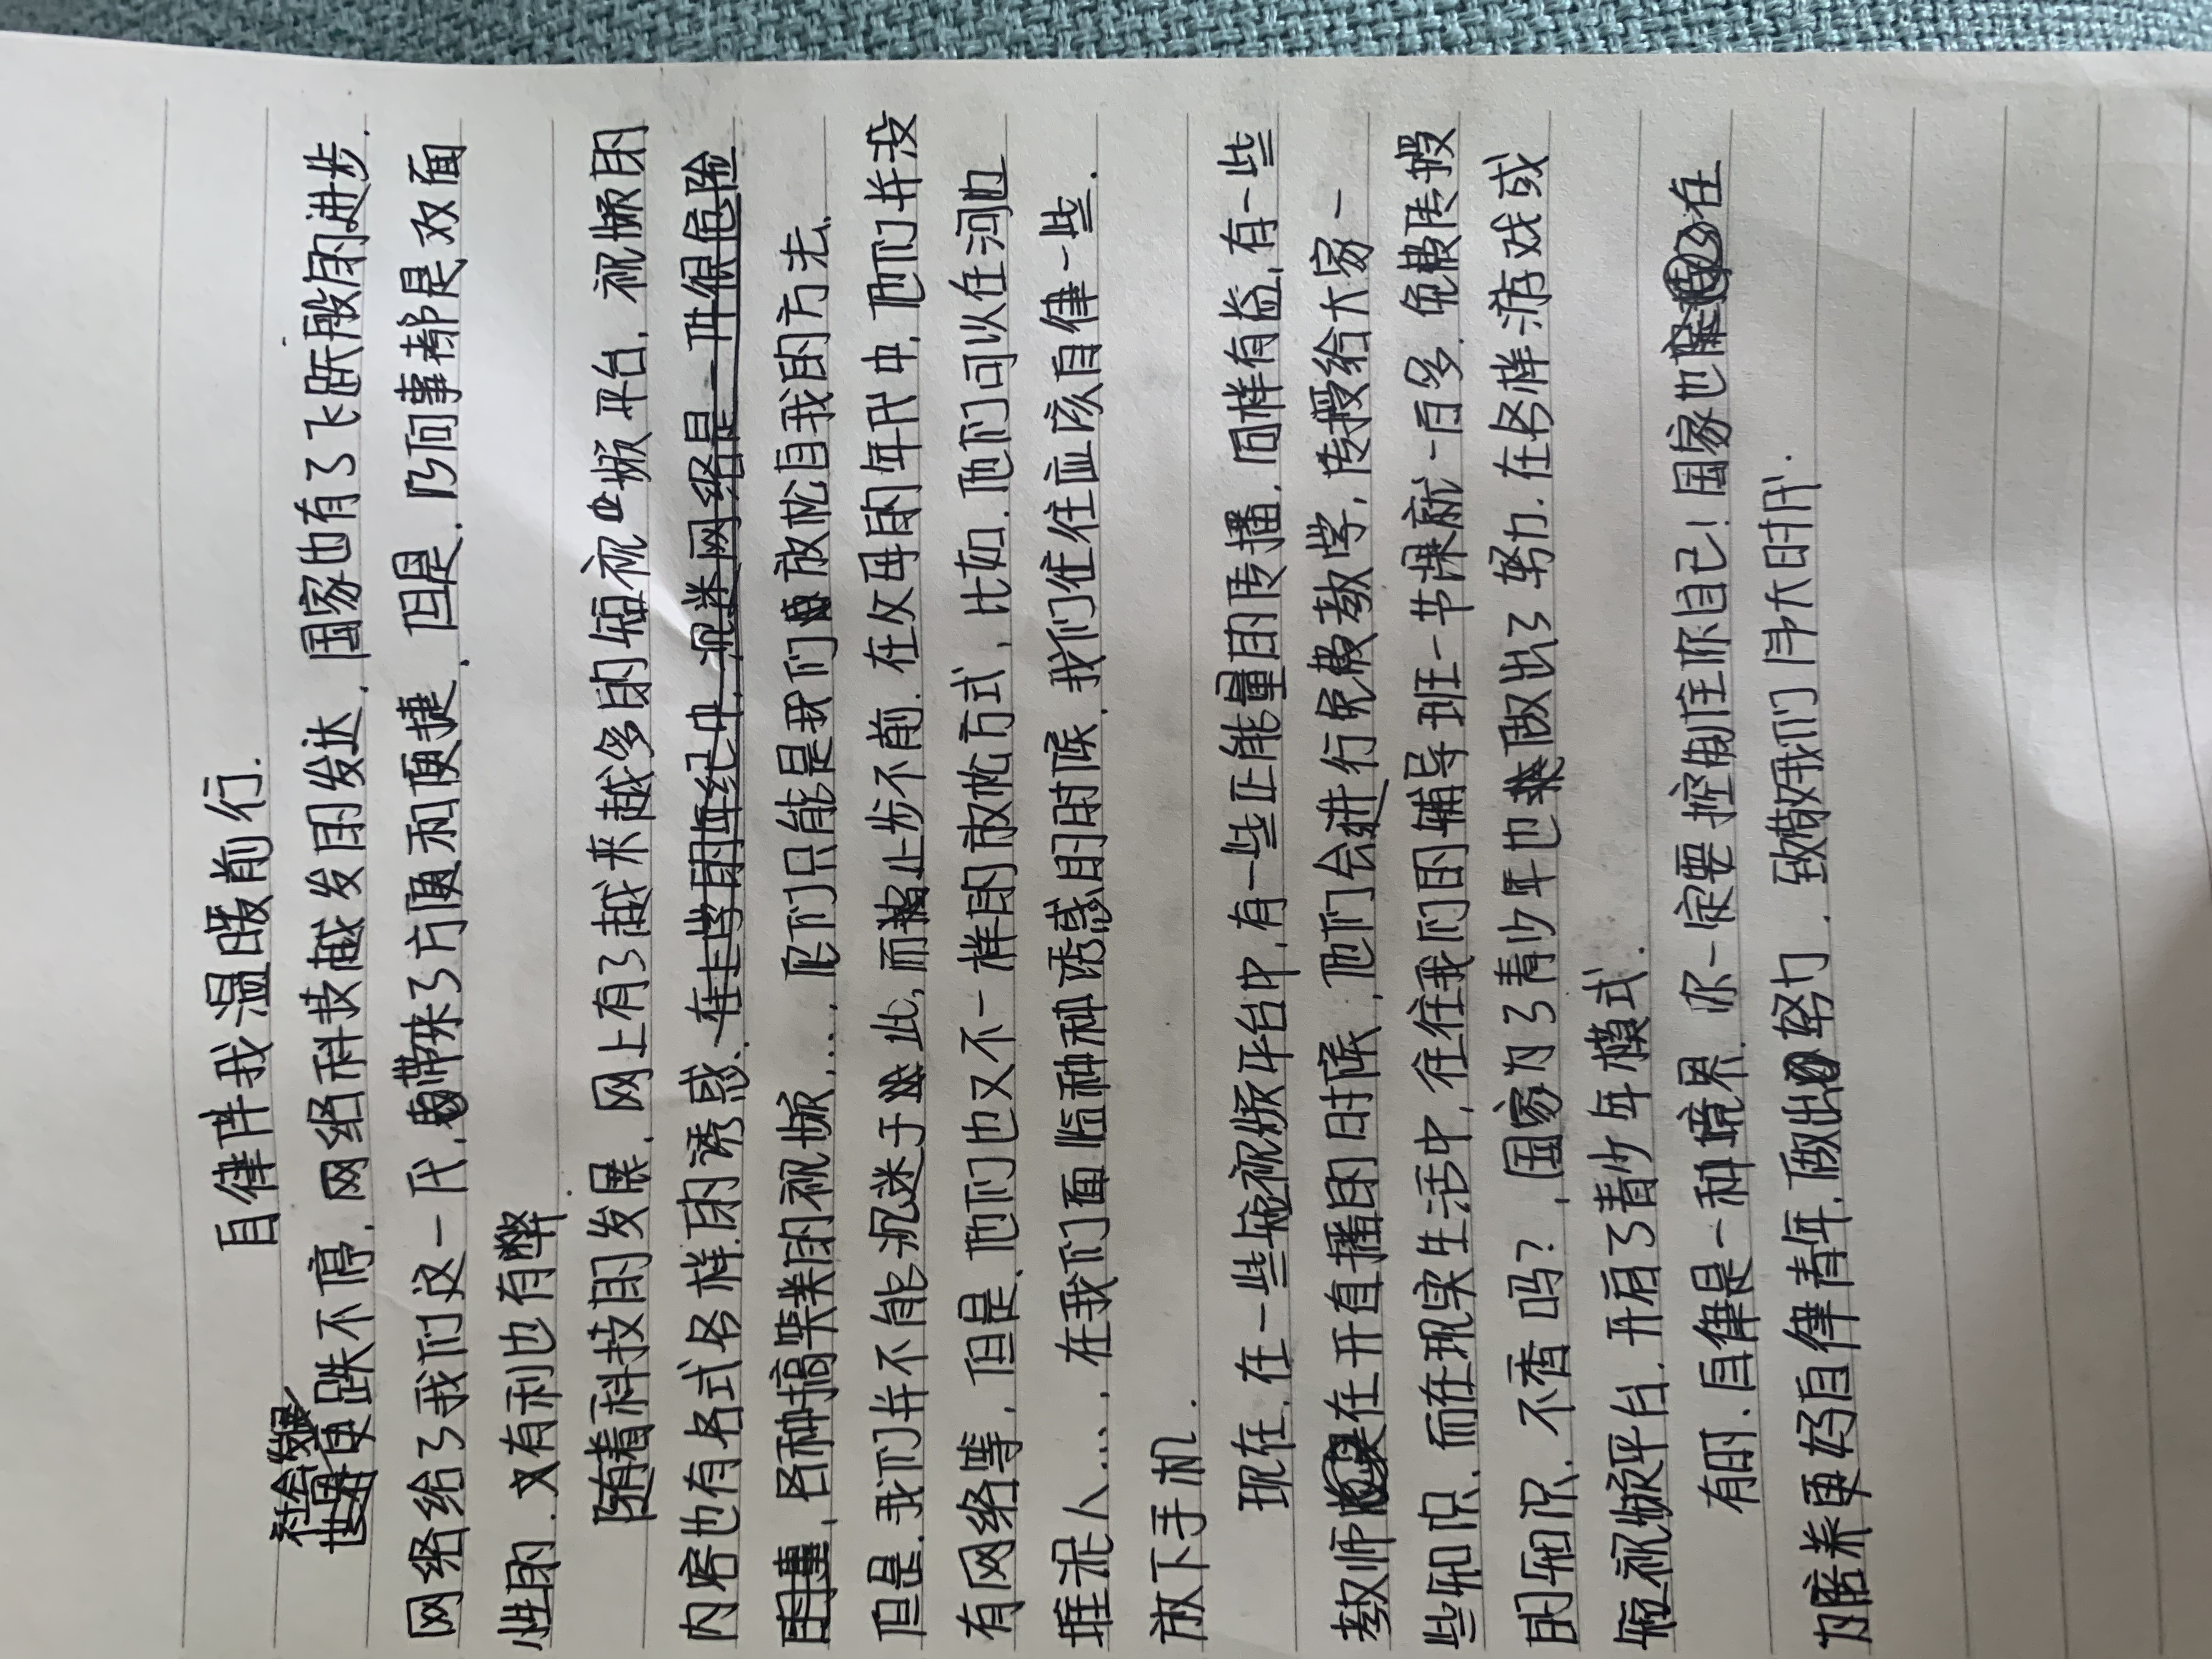 自律伴我温暖前行.
社会发展
更跌不停,网络科技越发的发达,国家也有了飞跃般的进步.
网络给了我们这一代,带来了方便和便捷,但是,任何事都是双面
性的,又有利也有弊.
随着科技的发展,网上有了越来越多的短视频平台,视频的
内容也有各式各样的诱惑.在上学的年纪中,沉迷网络是一件很危险
的事,各种搞笑的视频...,它们只能是我们放松自我的方法,
但是,我们并不能沉迷于此,而止步不前.在父母的年代中,他们并没
有网络等,但是,他们也又不一样的放松方式,比如,他们可以在河边
堆泥人...,在我们面临种种诱惑的时候,我们往往应该自律一些.
放下手机.
现在,在一些短视频平台中,有一些正能量的传播,同样有益,有一些
教师在开直播的时候,他们会进行免费教学,传授给大家一
些知识,而在现实生活中,往往我们的辅导班一节课就一百多,免费传授
的知识,不香吗?,国家为了青少年也做出了努力.在各样游戏或
短视频平台,开启了青少年模式.
有时,自律是一种境界,你一定要控制住你自己!国家也在
为培养更好自律青年,做出努力,致敬我们伟大时代.